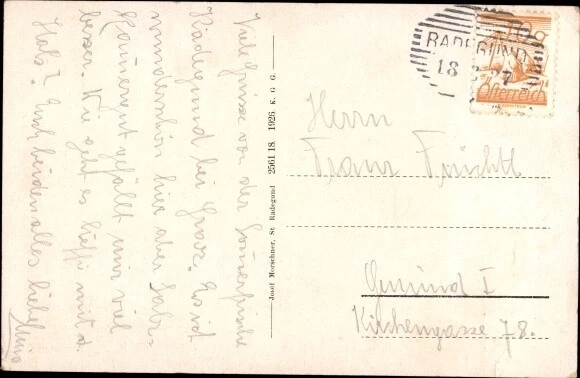 Viele Grüsse von der Sommerfrische
Radegund bei Graz. Es ist
wunderschön hier aber Salz-
kammergut gefällt mir viel
besser. Wie geht es Steffi mit d.
Hals? Euch beiden alles liebe
Josef Morschner, St. Radegund 2561 18. 1926 K. G. G.
RADEGUND
18
Österreich
Herrn
Franz
Gmünd I
Kirchengasse 78.